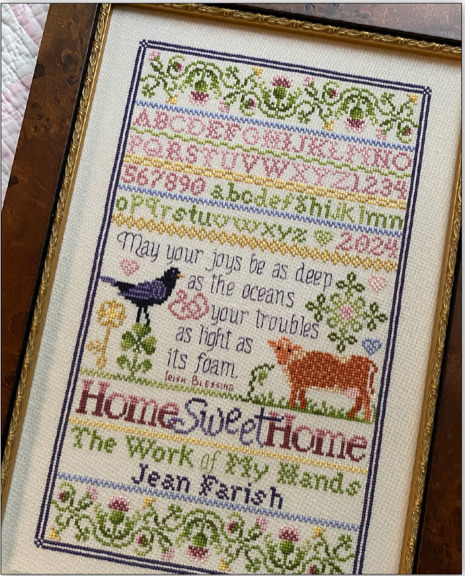 ABCDEFGHIJKLMNO
PQRSTUVWXYZ1234
567890 abcdefghijklmn
opqrstuvwxyz 2024
May your joys be as deep
as the oceans
& your troubles
as light as
its foam.
Irish Blessing
Home Sweet Home
The Work of My Hands
Jean Farish